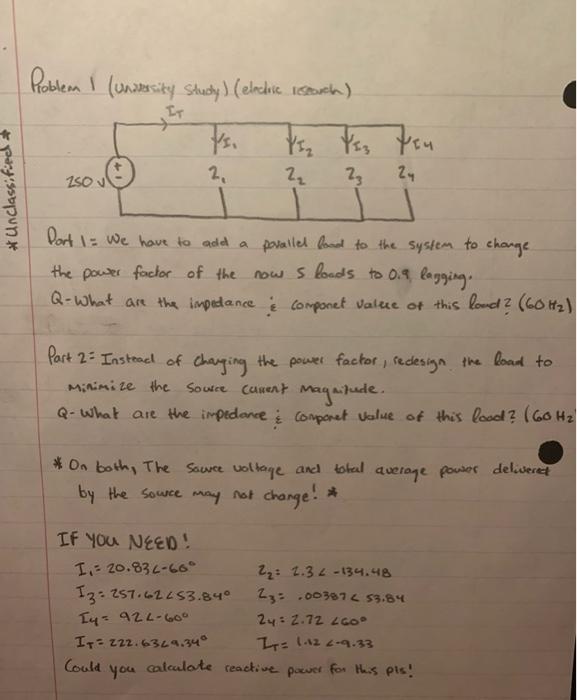 Problem 1 (university study) (electric research)
IT
I1 I2 I3 I4
250 V + - Z1 Z2 Z3 Z4
*Unclassified*
Part 1= We have to add a parallel load to the system to change
the power factor of the now 5 loads to 0.9 lagging.
Q-What are the impedance & componet value of this load? (60 Hz)
Part 2= Instead of changing the power factor, redesign the load to
minimize the source current magnitude.
Q-What are the impedance & componet value of this load? (60 Hz
* On both, The source voltage and total average power delivered
by the source may not change! *
IF YOU NEED!
I1= 20.83∠-60° Z2= 2.3∠-134.48
I3= 257.62∠53.84° Z3= .00387∠53.84
I4= 92∠-60° Z4= 2.72∠60°
IT= 222.63∠9.34° ZT= 1.12∠-9.33
Could you calculate reactive power for this pls!